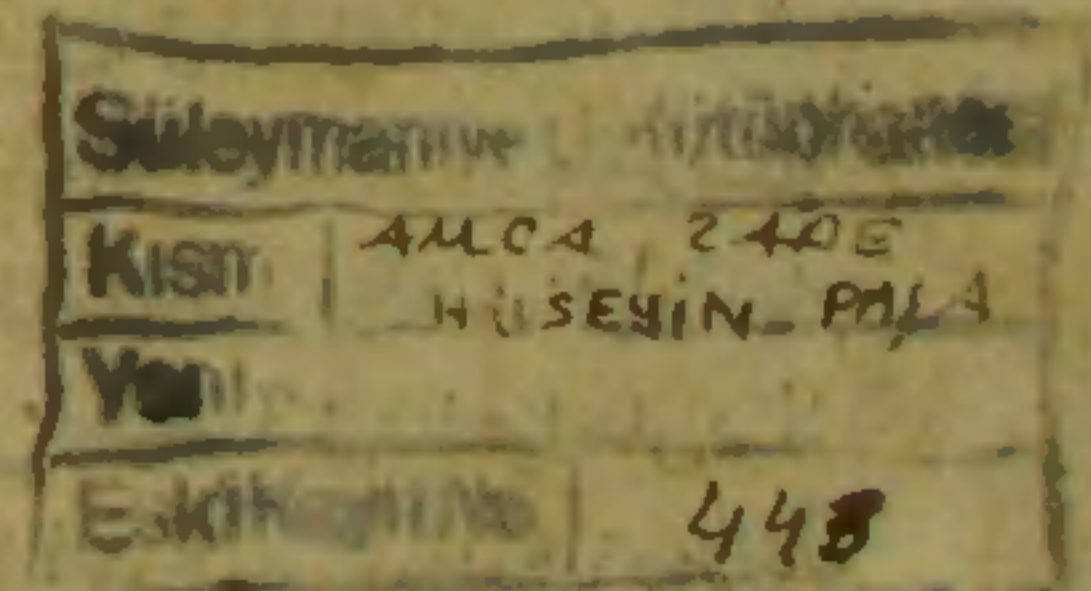 Süleymaniye Kütüphanesi
Kısmı AMCA ZADE
HÜSEYİN PAŞA
Yeni
Eski Kayıt No 448